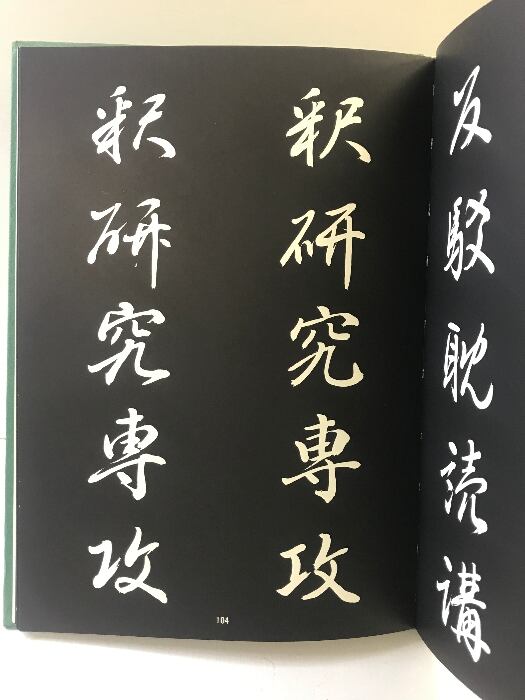 反駁耽読講
釈研究専攻
釈研究専攻
104